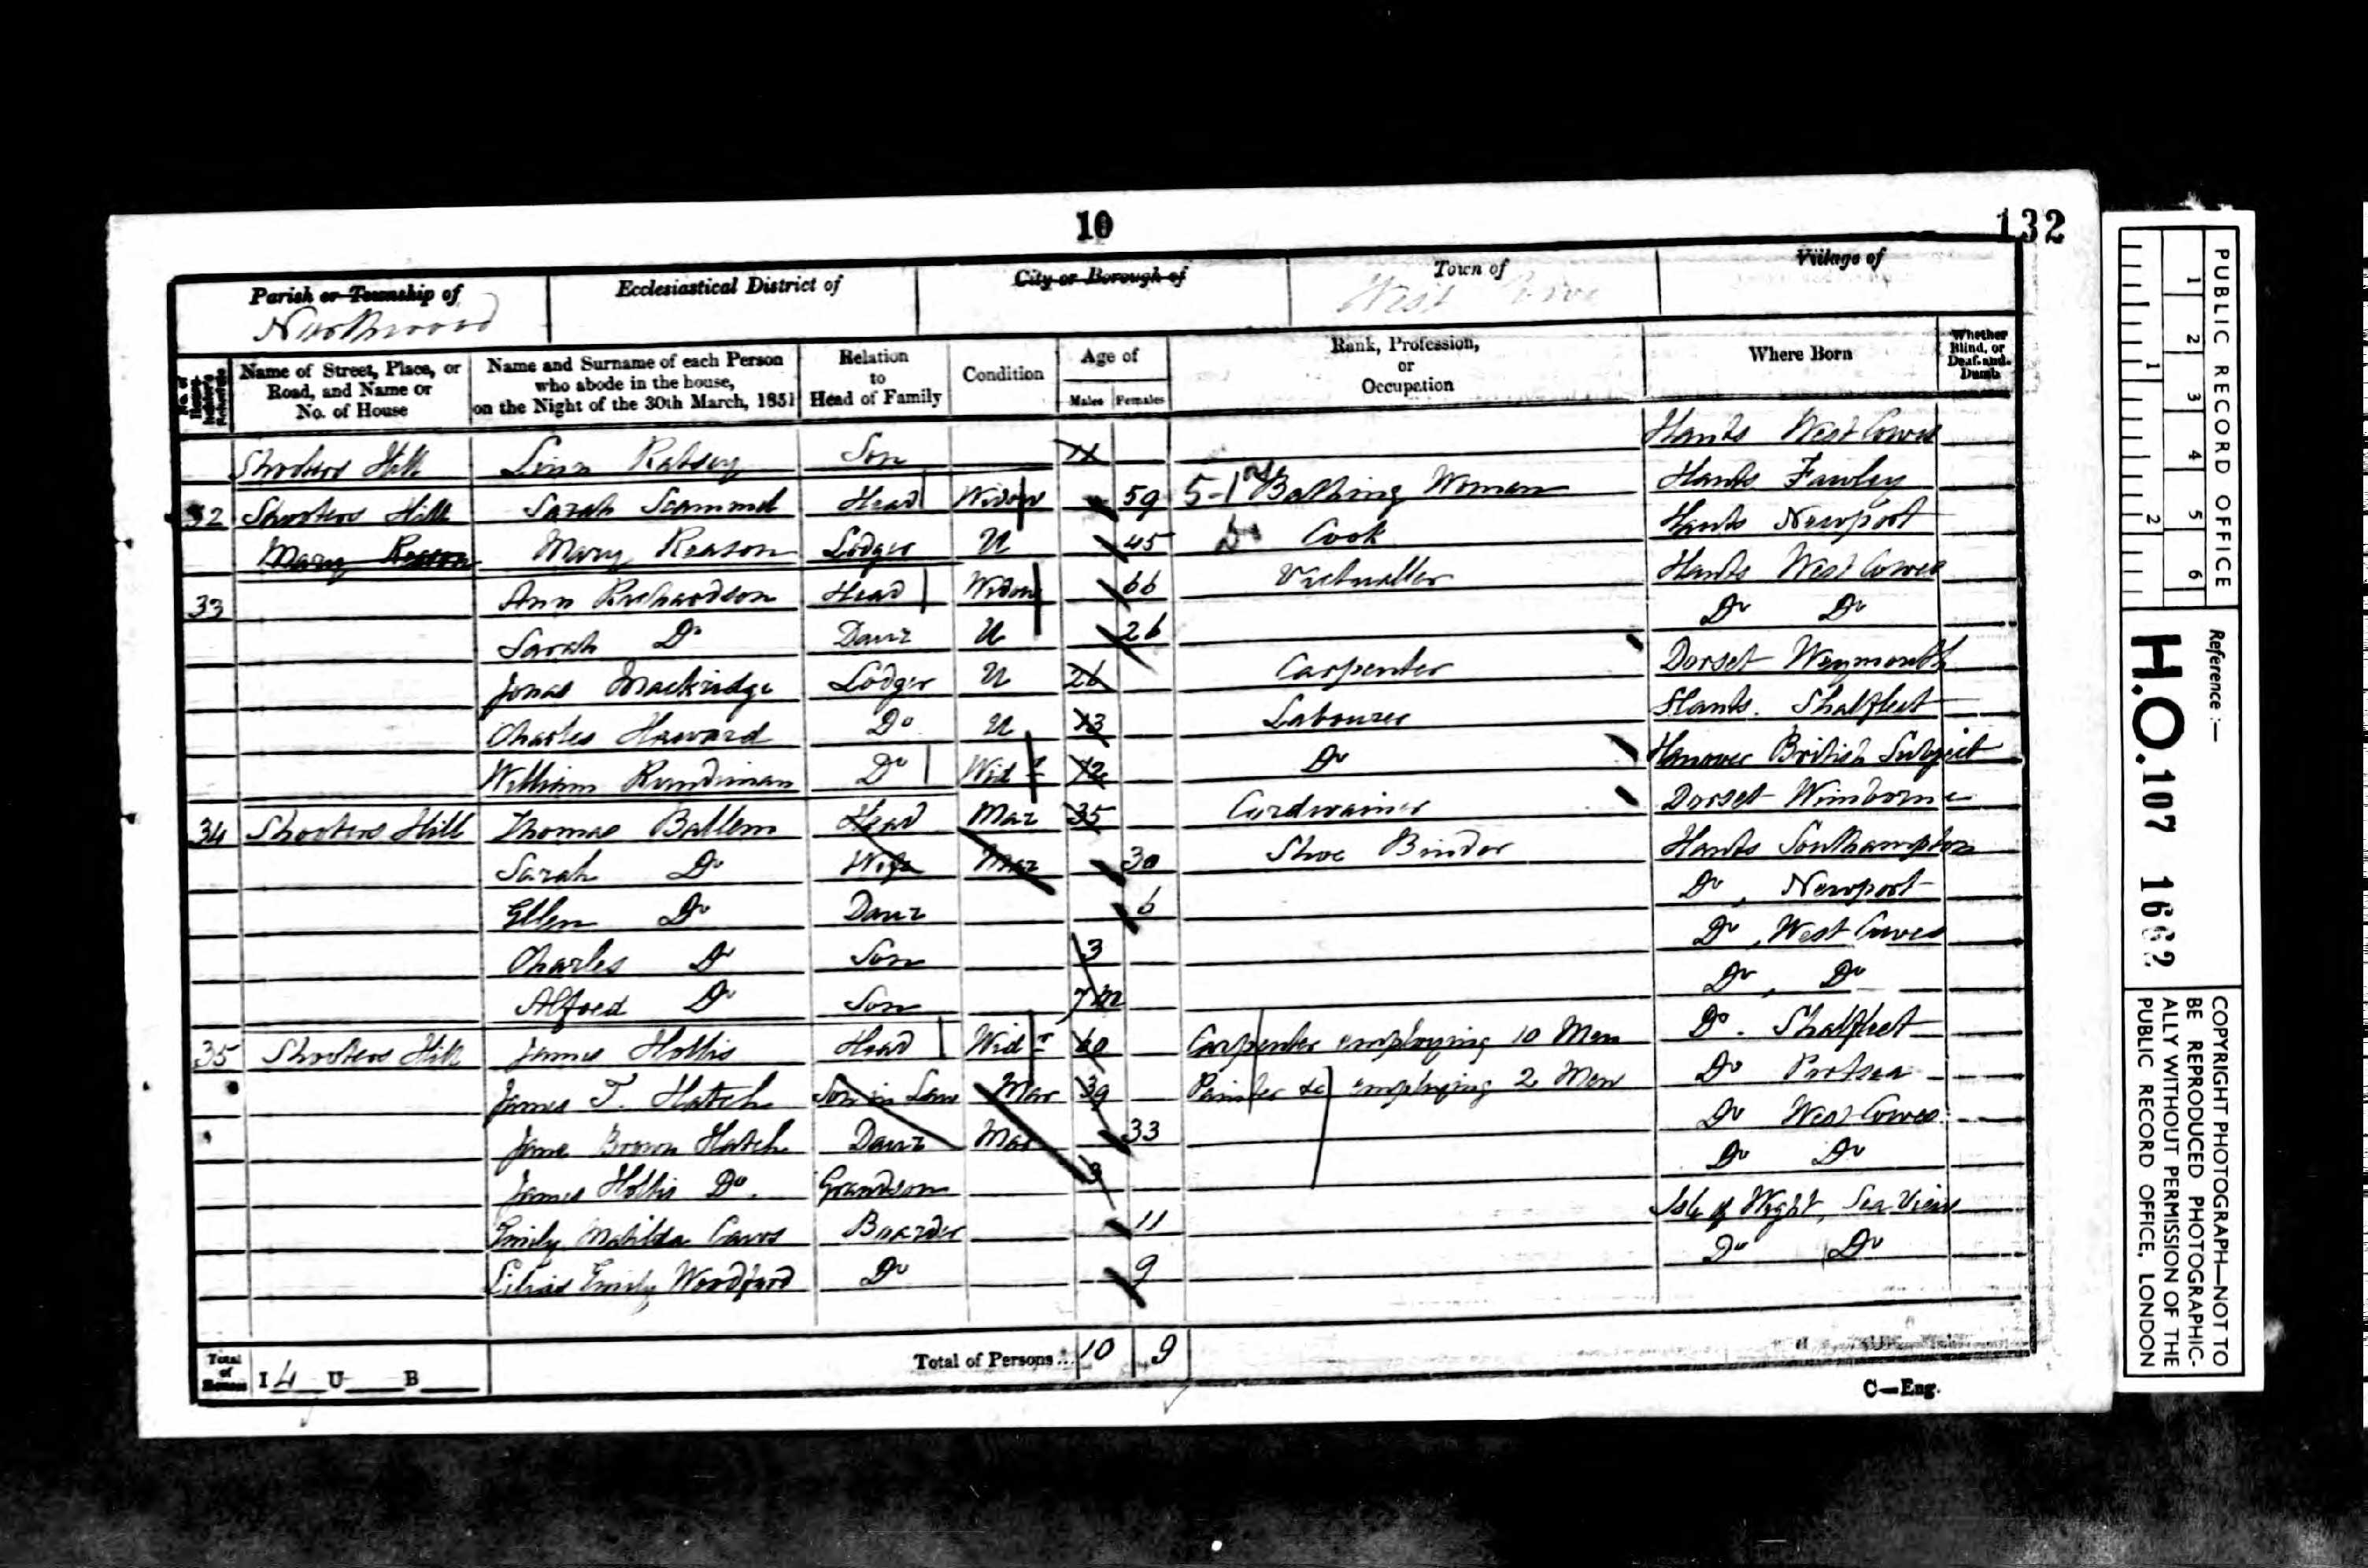 10
132
Parish or Township of
Northwood
Ecclesiastical District of
City or Borough of
Town of
West
Village of
Name of Street, Place, or Road, and Name or No. of House
Name and Surname of each Person who abode in the house, on the Night of the 30th March, 1851
Relation to Head of Family
Condition
Age of
Males Females
Rank, Profession, or Occupation
Where Born
Whether Blind, or Deaf-and-Dumb
Shooters Hill Ratsey Son Hants West Cowes
32 Shooters Hill Sarah Scammel Head Widow 59 Bathing Woman Hants Fawley
Mary Reason Mary Reason Lodger U 45 Do Cook Hants Newport
33 Ann Richardson Head Widow 66 Victualler Hants West Cowes
Sarah Do Daur 26 Do Do
Jonas Mackridge Lodger U 26 Carpenter Dorset Weymouth
Charles Haward Do U Labourer Hants. Shalfleet
William Rundiman Do Widr Do Hanover British Subject
34 Shooters Hill Thomas Ballem Head Mar 35 Cordwainer Dorset Wimborne
Sarah Do Wife Mar 30 Shoe Binder Hants Southampton
Ellen Do Daur 6 Do, Newport
Charles Do Son 3 Do, West Cowes
Alfred Do Son 7m Do, Do
35 Shooters Hill James Hollis Head Widr 60 Carpenter employing 10 Men Do. Shalfleet
James T. Hatch Son in Law Mar 39 Painter &c employing 2 Men Do Portsea
Jane Brown Hatch Daur Mar 33 Do West Cowes
James Hollis Do. Grandson 3 Do Do
Emily Matilda Caws Boarder 11 Isle of Wight, Sea View
Emily Woodford Do 9 Do Do
Total of Houses I 4 U B
Total of Persons... 10 9
C—Eng.
PUBLIC RECORD OFFICE
1 2 3 4 5 6
1 2
Reference:—
H.O. 107 1662
COPYRIGHT PHOTOGRAPH—NOT TO
BE REPRODUCED PHOTOGRAPHIC-
ALLY WITHOUT PERMISSION OF THE
PUBLIC RECORD OFFICE, LONDON